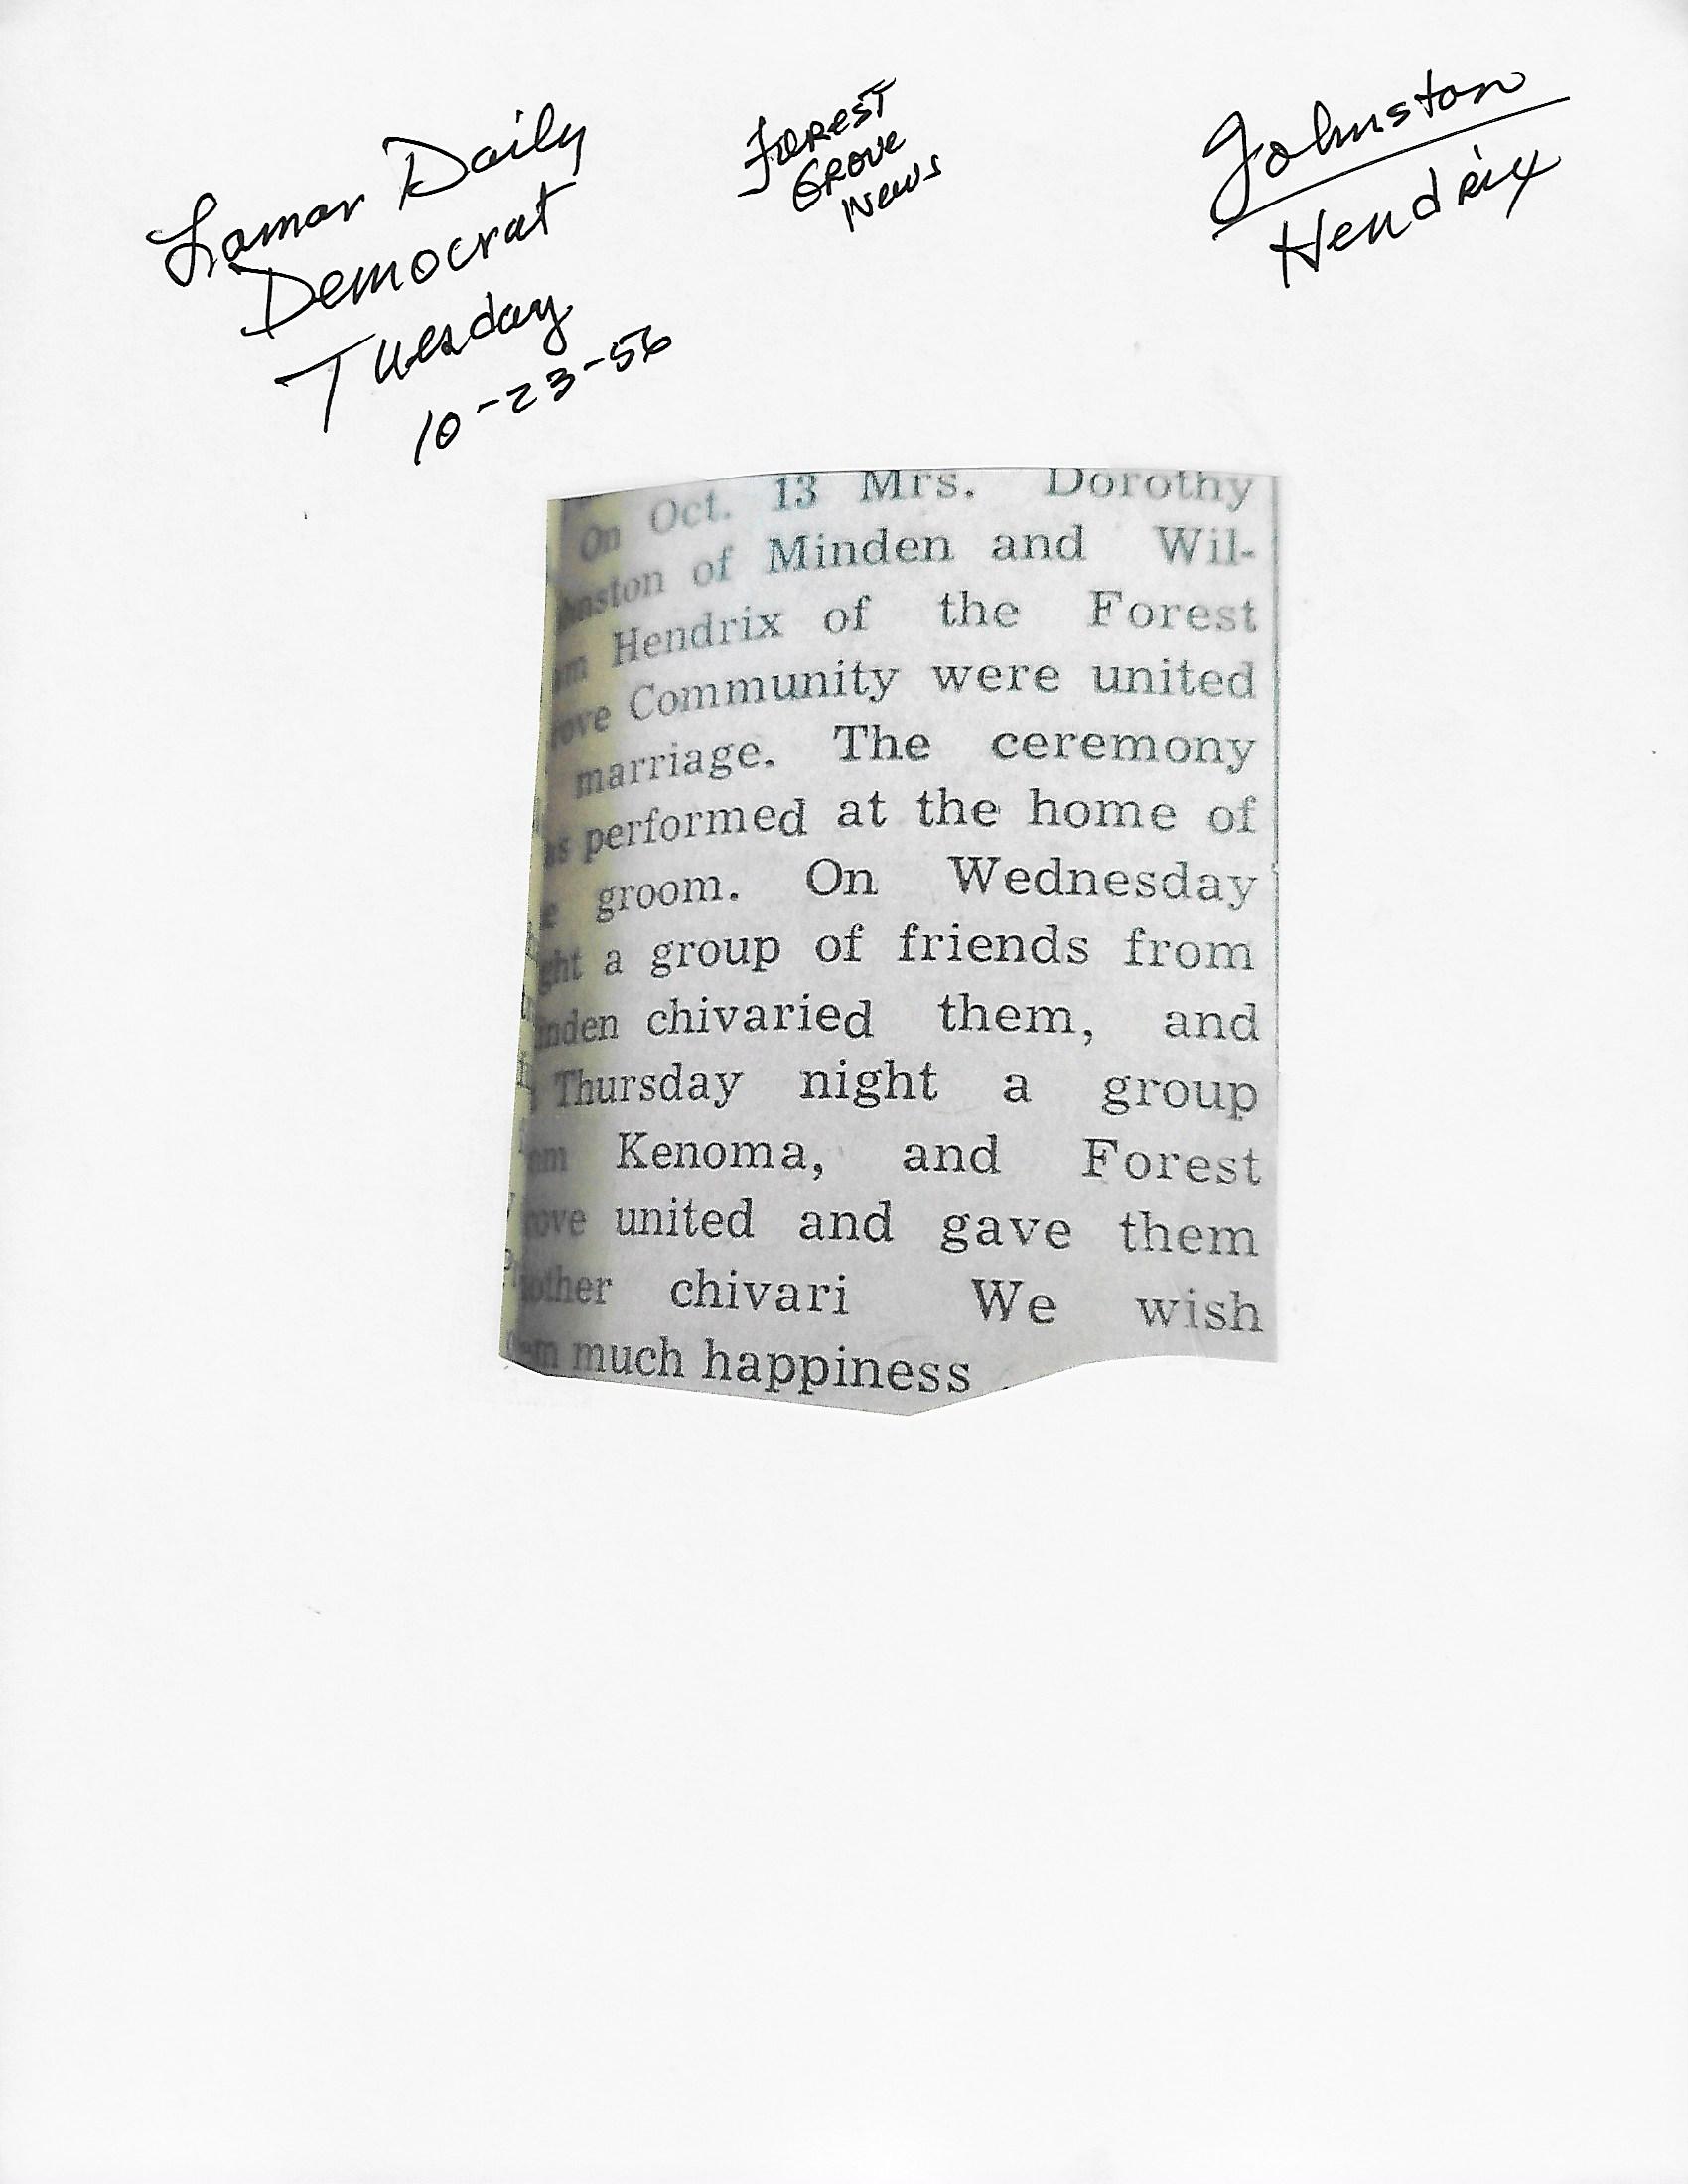 Lamar Daily
Democrat
Tuesday
10-23-56
Forest
Grove
News
Johnston
Hendrix
On Oct. 13 Mrs. Dorothy
nston of Minden and Wil-
am Hendrix of the Forest
rove Community were united
marriage. The ceremony
as performed at the home of
e groom. On Wednesday
ght a group of friends from
nden chivaried them, and
Thursday night a group
om Kenoma, and Forest
rove united and gave them
other chivari We wish
em much happiness .